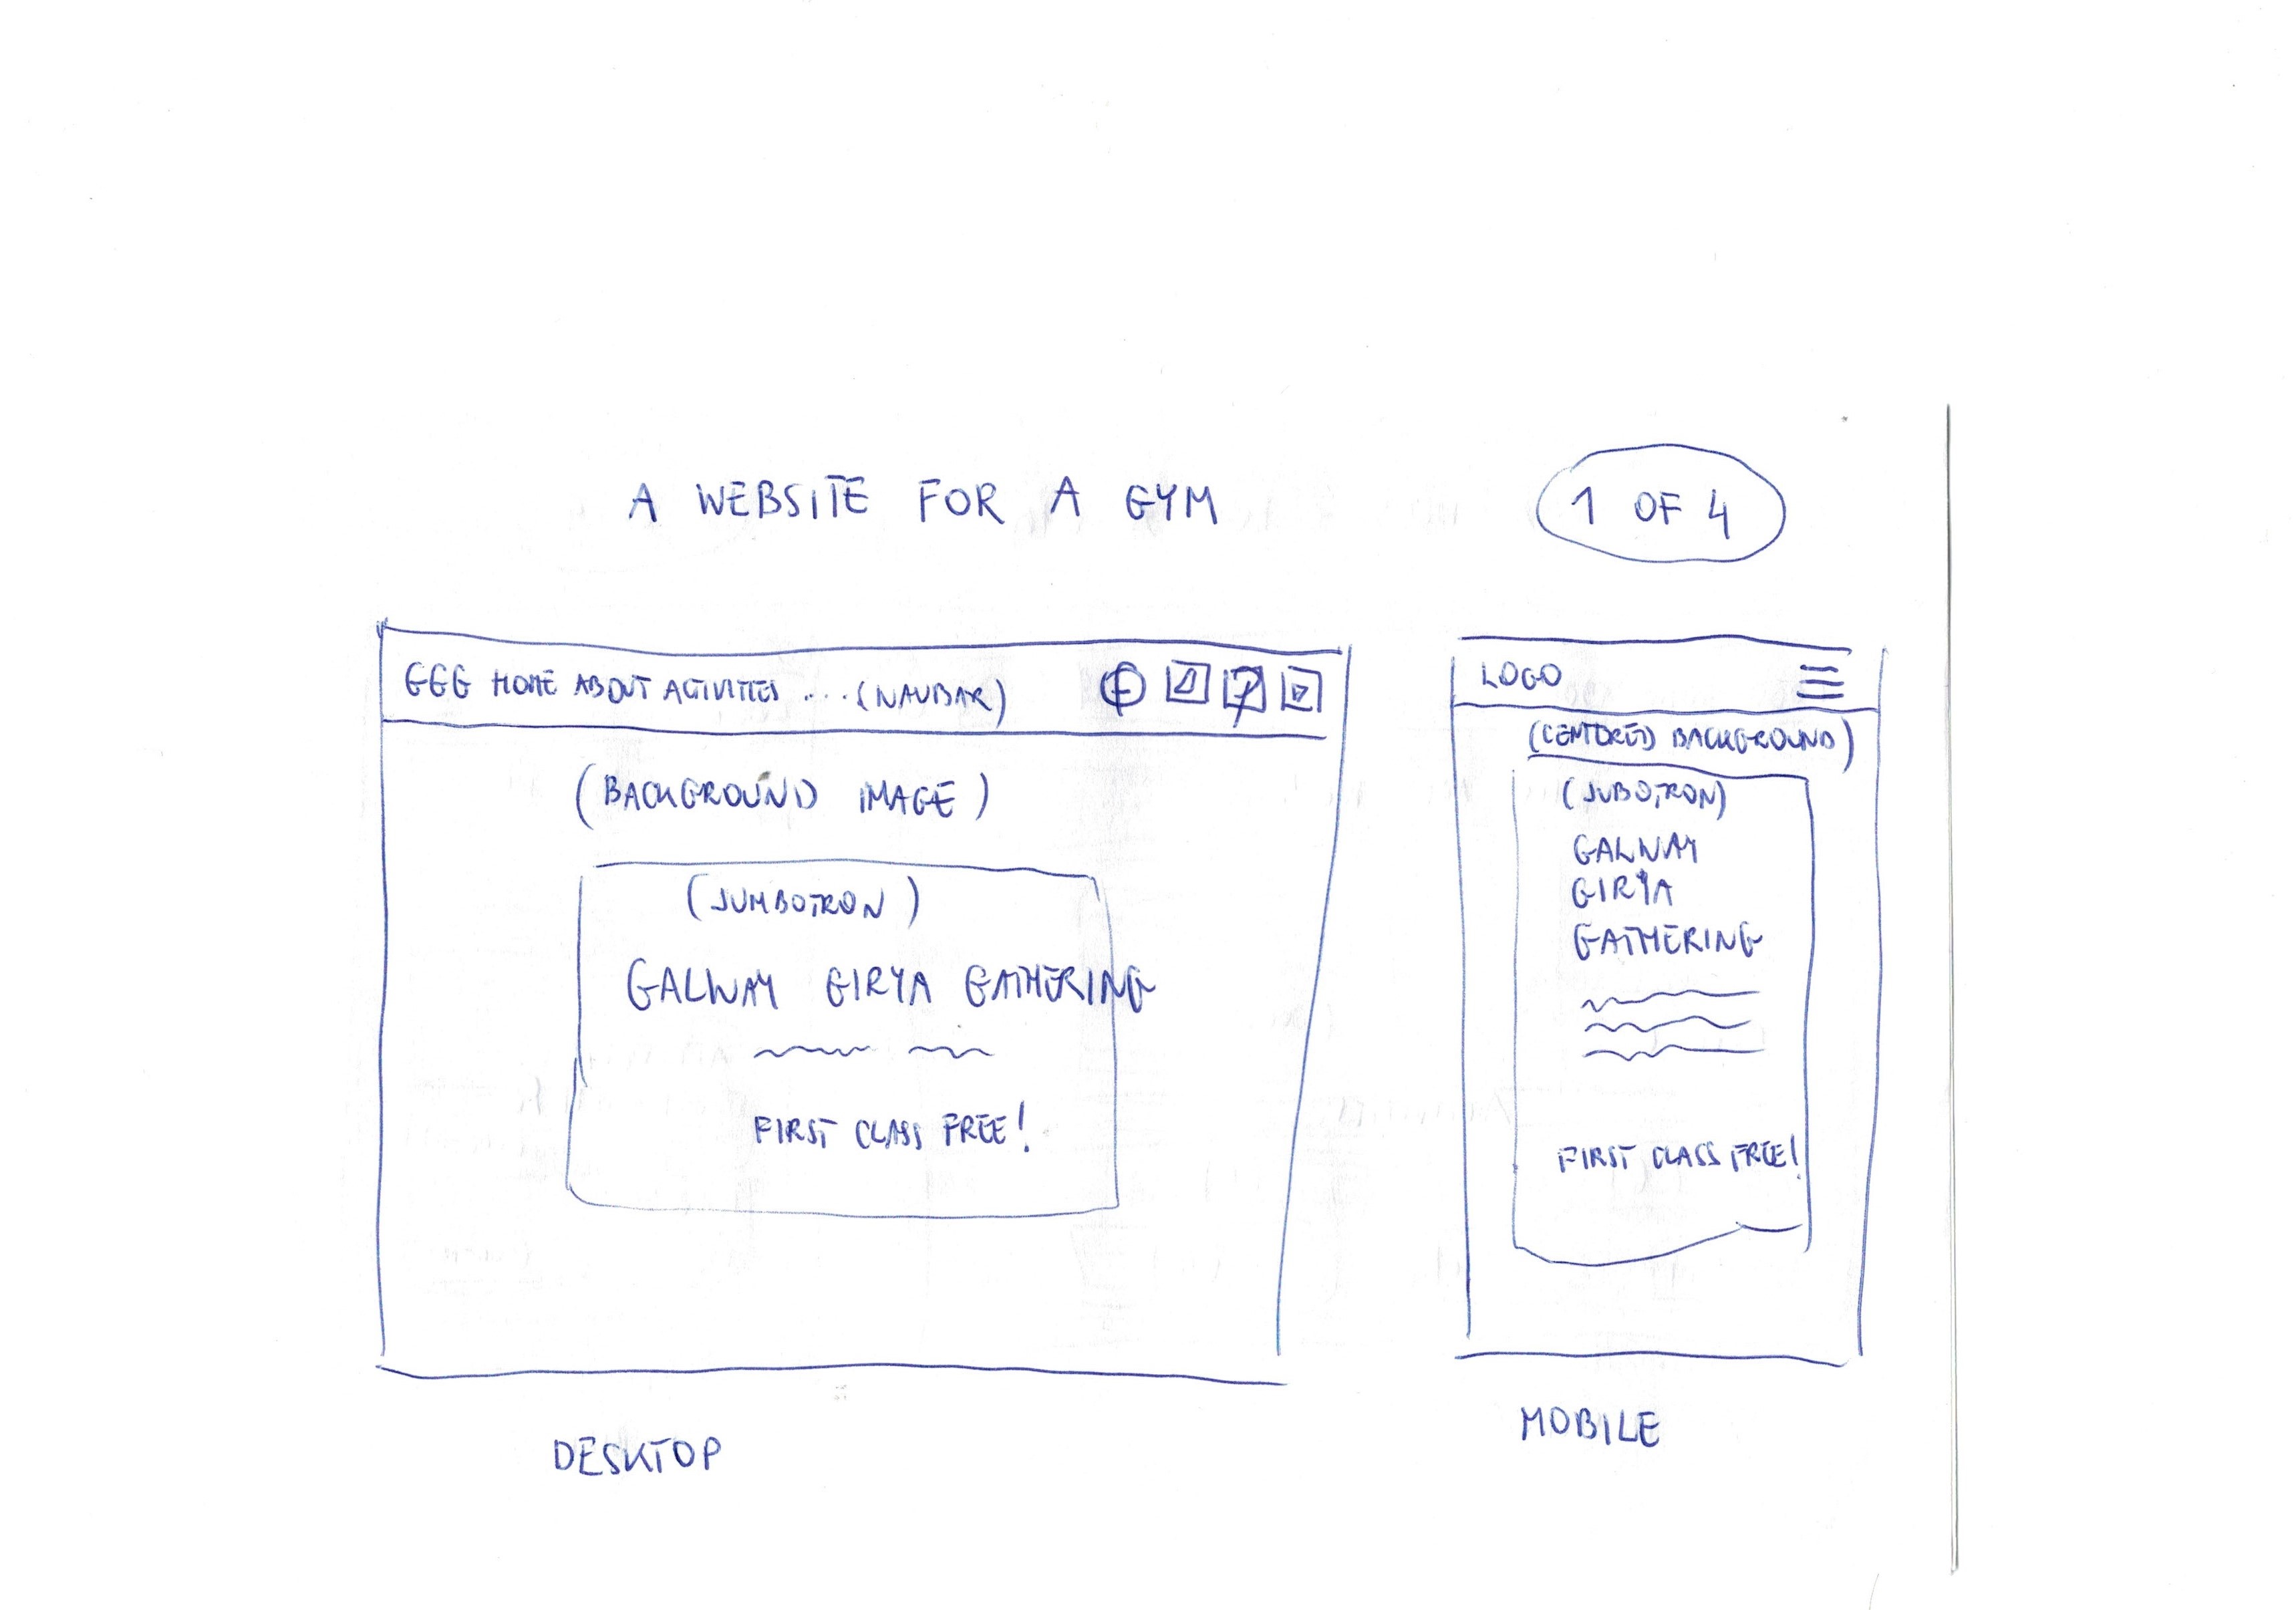 A WEBSITE FOR A GYM
1 OF 4
GGG HOME ABOUT ACTIVITIES .... (NAVBAR)
(BACKGROUND IMAGE)
(JUMBOTRON)
GALWAY GIRYA GATHERING
FIRST CLASS FREE!
DESKTOP
LOGO
(CENTORED BACKGROUND)
(JUBOTRON)
GALWAY
GIRYA
GATHERING
FIRST CLASS FREE!
MOBILE